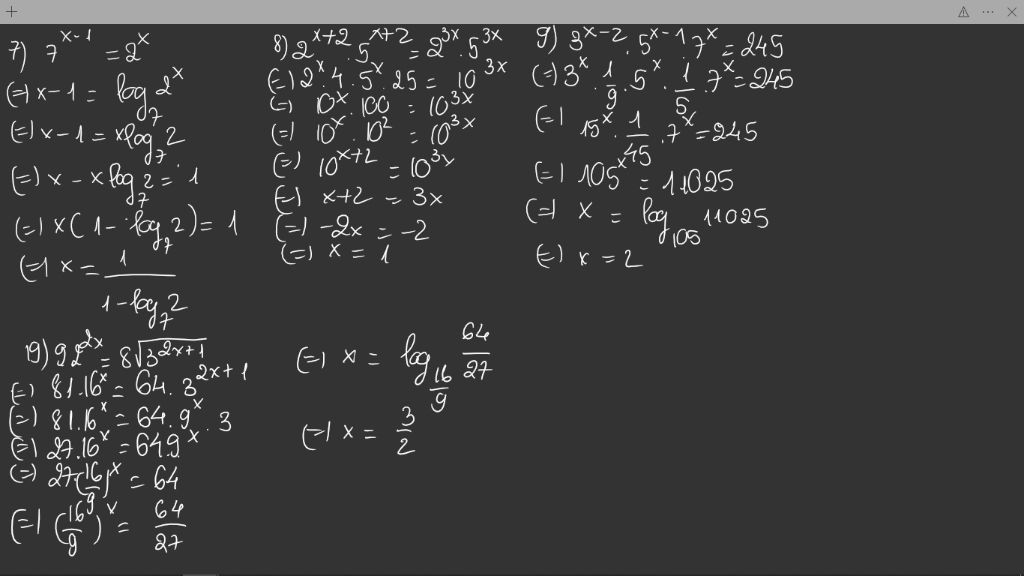 7) 7^{x-1} = 2^x
(=) x - 1 = log_7 2^x
(=) x - 1 = x log_7 2
(=) x - x log_7 2 = 1
(=) x(1 - log_7 2) = 1
(=) x = \frac{1}{1 - log_7 2}
8) 2^{x+2} . 5^{x+2} = 2^{3x} . 5^{3x}
(=) 2^x . 4 . 5^x . 25 = 10^{3x}
(=) 10^x . 100 = 10^{3x}
(=) 10^x . 10^2 = 10^{3x}
(=) 10^{x+2} = 10^{3x}
(=) x+2 = 3x
(=) -2x = -2
(=) x = 1
9) 3^{x-2} . 5^{x-1} . 7^x = 245
(=) 3^x . \frac{1}{9} . 5^x . \frac{1}{5} . 7^x = 245
(=) 15^x . \frac{1}{45} . 7^x = 245
(=) 105^x = 11025
(=) x = log_{105} 11025
(=) x = 2
19) 9.2^{2x} = 8\sqrt{3^{2x+1}}
(=) 81.16^x = 64.3^{2x+1}
(=) 81.16^x = 64.9^x . 3
(=) 27.16^x = 64.9^x
(=) 27.(\frac{16}{9})^x = 64
(=) (\frac{16}{9})^x = \frac{64}{27}
(=) x = log_{\frac{16}{9}} \frac{64}{27}
(=) x = \frac{3}{2}